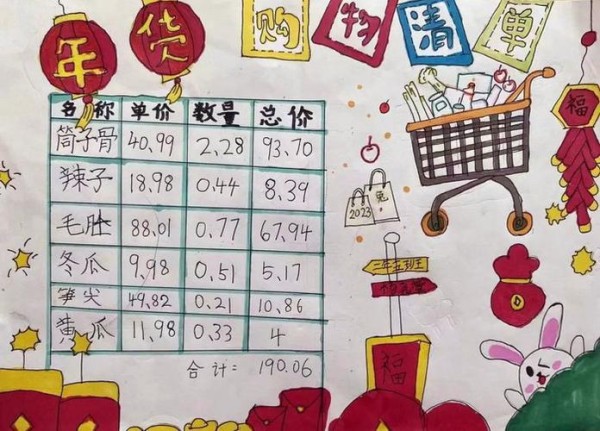 年货
购物清单
名称 单价 数量 总价
筒子骨 40.99 2.28 93.70
辣子 18.98 0.44 8.39
毛肚 88.01 0.77 67.94
冬瓜 9.98 0.51 5.17
笋尖 49.82 0.21 10.86
黄瓜 11.98 0.33 4
合计: 190.06
福
2023
兔
二年五班
福